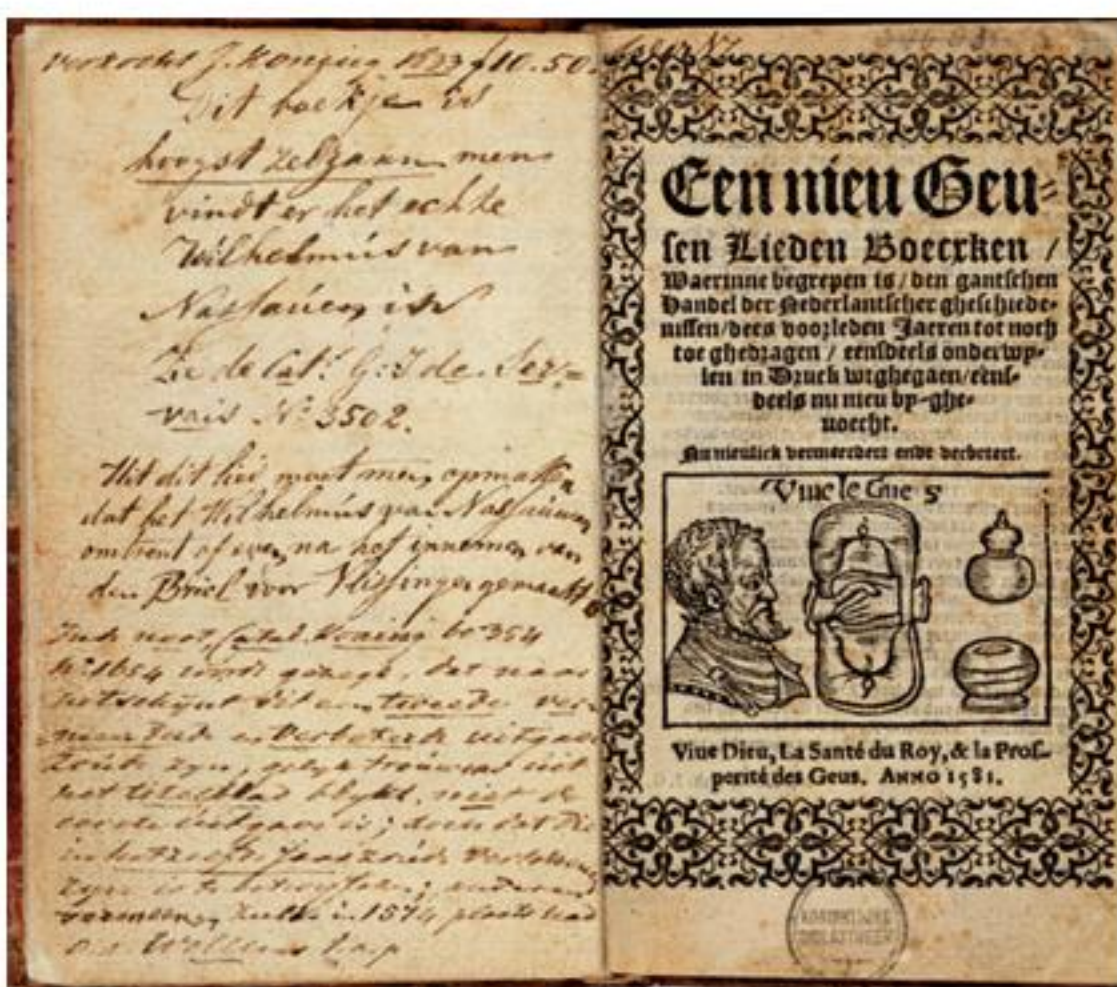 verkocht J. Koning 1833 f 10.50.
Dit boekje is
hoogst zeldzaam men
vindt er het echte
Wilhelmus van
Nassauen in
Zie de Cat. G. J. de Ser-
vais No. 3502.
Uit dit lied moet men opmaken
dat het Wilhelmus van Nassauwen
omtrent of even na het innemen van
den Briel voor Vlissingen gemaakt
Catal. Koning
No. 1654 wordt gezegd, dat naar
het schijnt dit een tweede ver-
en verbeterde uitgave
zoude zyn, gelyk trouwens uit
het titelblad blykt, niet de
eerste uitgave is; doch dat die
in hetzelfde Jaar zoude
zyn is te betwyfelen; anderen
vermeenen, zulks in 1574 plaats had
Een nieu Geu-
sen Lieden Boecxken /
Waerinne begrepen is / den gantschen
Handel der Nederlantscher gheschiede-
nissen / dees voorleden Jaeren tot noch
toe ghedragen / eensdeels onderwy-
len in Druck wtghegaen / eens-
deels nu nieu by-ghe-
uoecht.
Nu nieulick vermeerdert ende verbetert.
Viue le Gue s
Viue Dieu, La Santé du Roy, & la Pros-
perité des Geus. ANNO 1581.
KONINKLIJKE
BIBLIOTHEEK